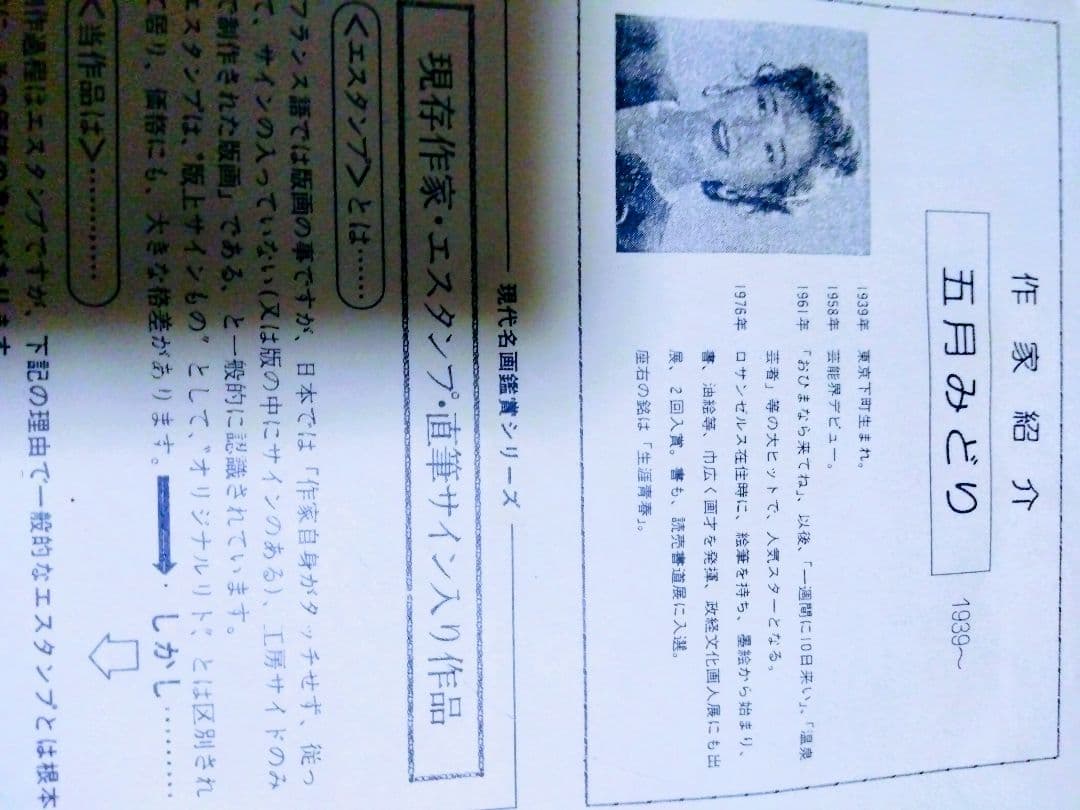 作家紹介
五月みどり 1939〜
1939年 東京下町生まれ。
1958年 芸能界デビュー。
1961年 「おひまなら来てね」、以後、「一週間に10日来い」、「温泉
芸者」等の大ヒットで、人気スターとなる。
1976年 ロサンゼルス在住時に、絵筆を持ち、墨絵から始まり、
書、油絵等、巾広く画才を発揮、政経文化画人展にも出
展、2回入賞。書も、読売書道展に入選。
座右の銘は「生涯青春」。
現代名画鑑賞シリーズ
現存作家・エスタンプ・直筆サイン入り作品
<エスタンプ>とは……
フランス語では版画の事ですが、日本では「作家自身がタッチせず、従っ
て、サインの入っていない(又は版の中にサインのある)、工房サイドのみ
で制作された版画」である、と一般的に認識されています。
エスタンプは、〝版上サインもの〟として、〝オリジナルリト〟とは区別され
て居り、価格にも、大きな格差があります。➡・しかし…………
<当作品は>…………
制作過程はエスタンプですが、下記の理由で一般的なエスタンプとは根本